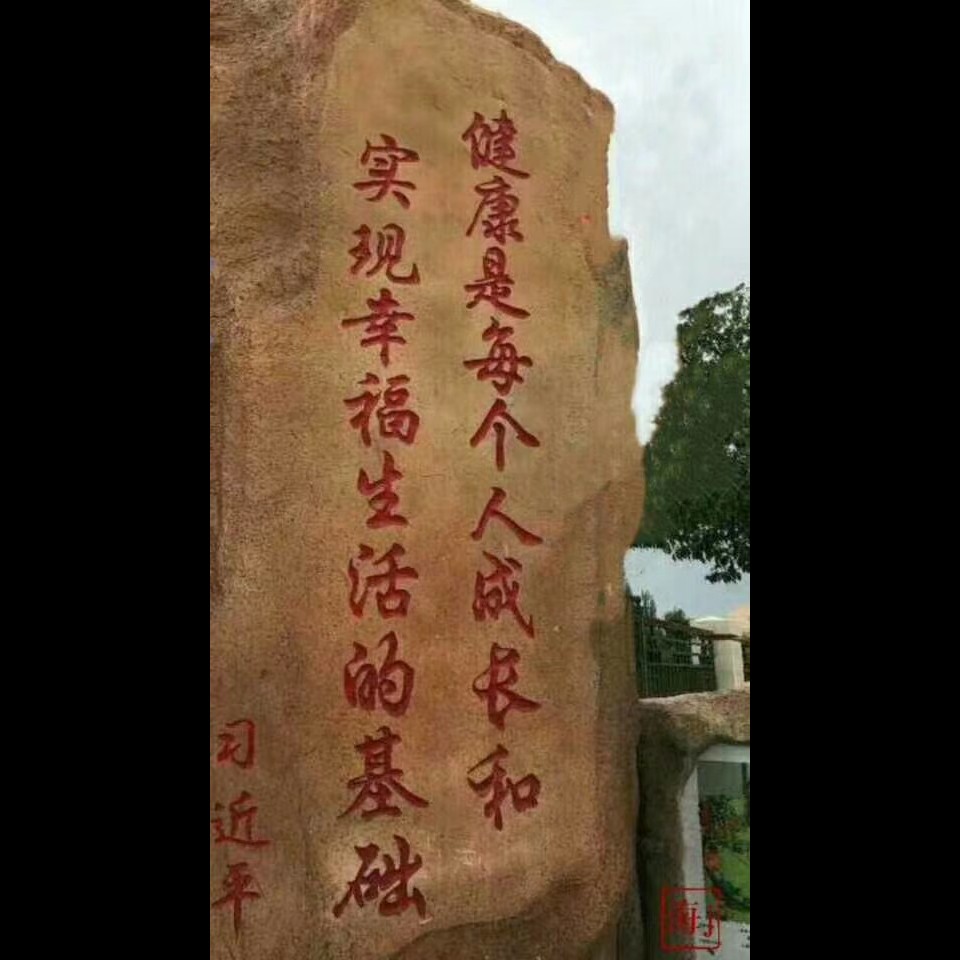 健康是每个人成长和
实现幸福生活的基础
习近平